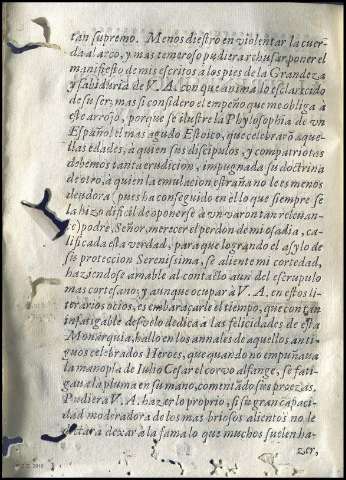 tan supremo. Menos diestro en violentar la cuer-
da al arco, y mas temeroso pudiera rehusar poner el
manifiesto de mis escritos a los pies de la Grandeza
y sabiduria de V. A. con que animalo esclarecido
de su ser; mas si considero el empeño que me obliga à
este arrojo, porque se ilustre la Phylosophia de vn
Español el mas agudo Estoico, que celebrarõ aque-
llas edades, à quien sus discipulos, y compatriotas
debemos tanta erudicion, impugnada su doctrina
de otro, à quien la emulacion estraña no le es menos
deudora (pues ha conseguido en èl lo que siempre se
la hizo dificil de oponerse à vn varon tan releuan-
te) podrè, Señor, merecer el perdon de mi osadia, ca-
lificada esta verdad, para que logrando el asylo de
su proteccion Serenissima, se aliente mi cortedad,
haziendose amable al contacto aun del escrupulo
mas cortesano; y aunque ocupar à V. A. en estos li-
terarios ocios, es embaraçarle el tiempo, que con tan
infatigable desvelo dedica à las felicidades de esta
Monarquia, hallo en los annales de aquellos anti-
guos celebrados Heroes, que quando no empuñaua
la manopla de Iulio Cesar el corvo alfange, se fati-
gaua la pluma en su mano, comentãdo sus proezas.
Pudiera V. A. hazer lo proprio, si su gran capaci-
dad moderadora de los mas briosos alientos no le
dexar à la fama lo que muchos suelen ha-
zer,